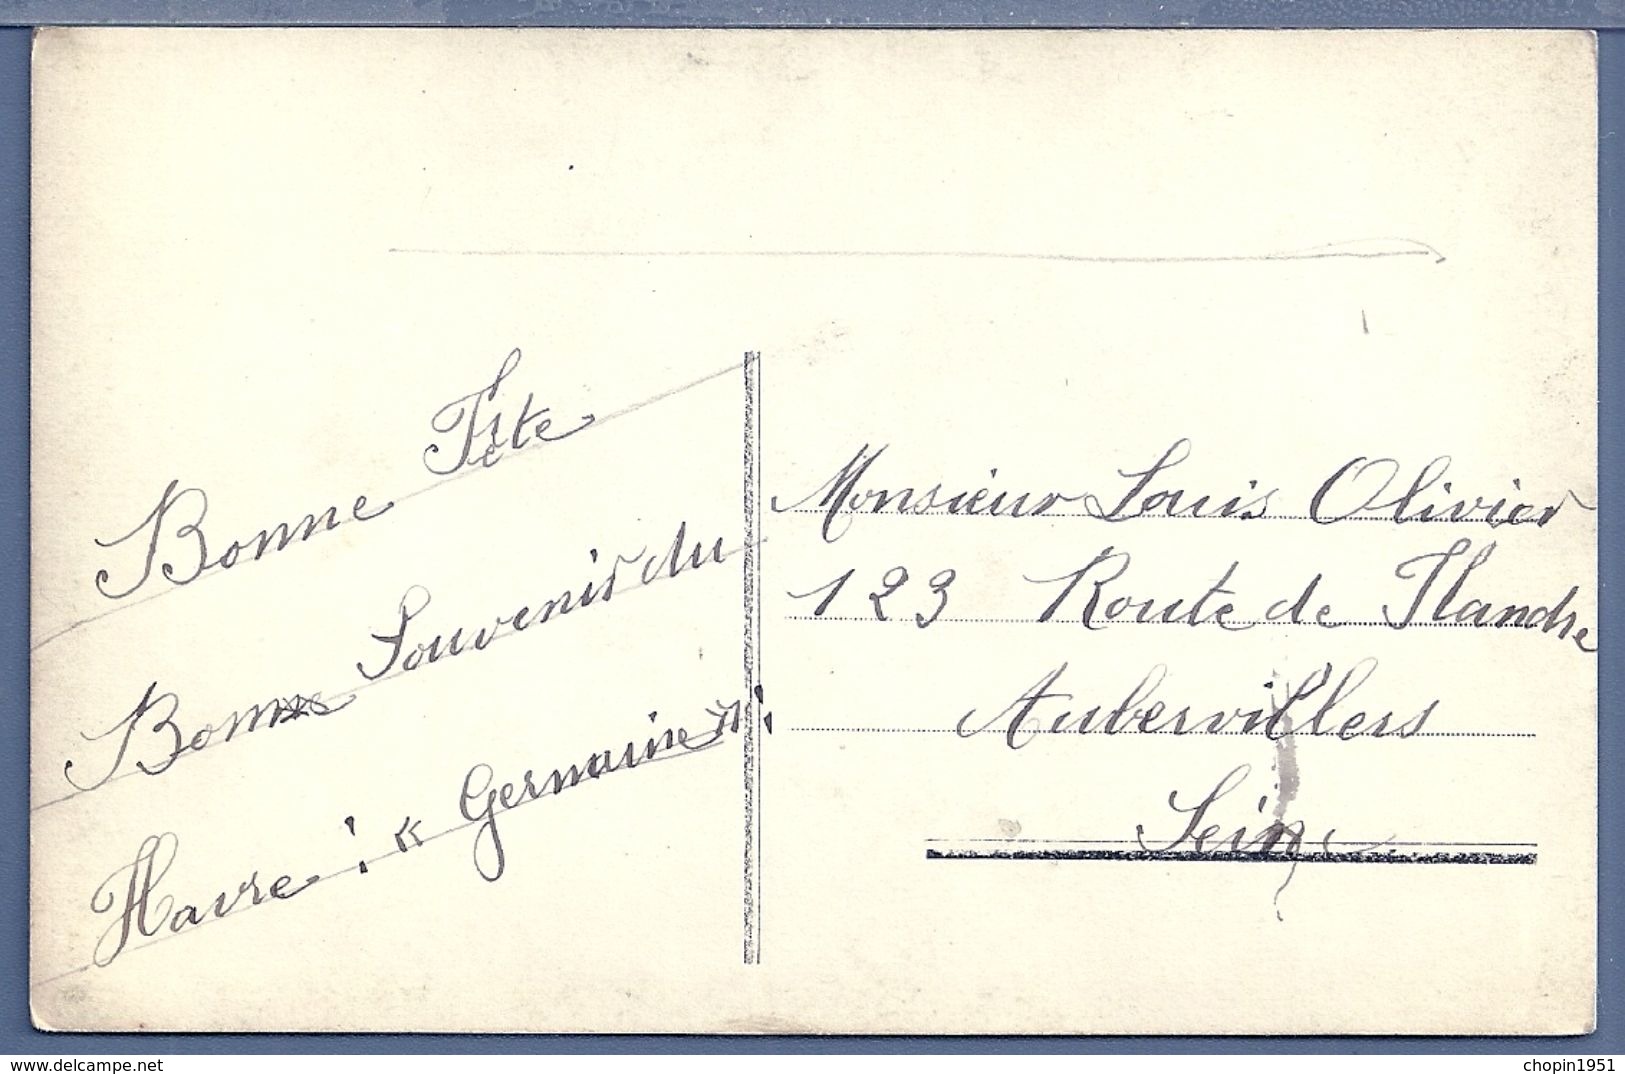 Bonne Fête
Bonne Souvenir du
Havre ! « Germaine » !
Monsieur Louis Olivier
123 Route de Flandre
Aubervilliers
Seine
https://www.delcampe.net
chopin1951